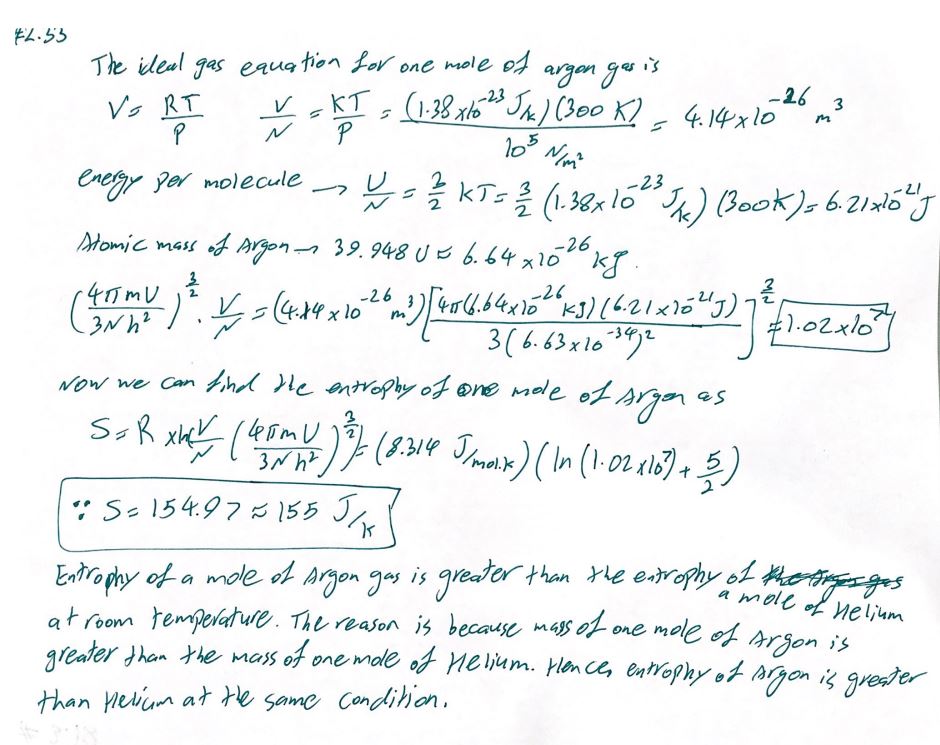 #2.33
The ideal gas equation for one mole of argon gas is
V = RT/P    V/N = KT/P = (1.38x10^-23 J/k)(300 K) / 10^5 N/m^2 = 4.14x10^-26 m^3
energy per molecule → U/N = 3/2 kT = 3/2 (1.38x10^-23 J/k)(300k) = 6.21x10^-21 J
Atomic mass of Argon → 39.948 U ≈ 6.64x10^-26 kg.
(4πmU/3Nh^2)^3/2 . V/N = (4.14x10^-26 m^3)[4π(6.64x10^-26 kg)(6.21x10^-21 J) / 3(6.63x10^-34)^2]^3/2 = 1.02x10^7
Now we can find the entrophy of one mole of Argon as
S = R x ln(V/N (4πmU/3Nh^2)^3/2) = (8.314 J/mol.k)(ln(1.02x10^7) + 5/2)
∵ S = 154.97 ≈ 155 J/k
Entrophy of a mole of Argon gas is greater than the entrophy of a mole of Helium
at room temperature. The reason is because mass of one mole of Argon is
greater than the mass of one mole of Helium. Hence, entrophy of Argon is greater
than Helium at the same condition.